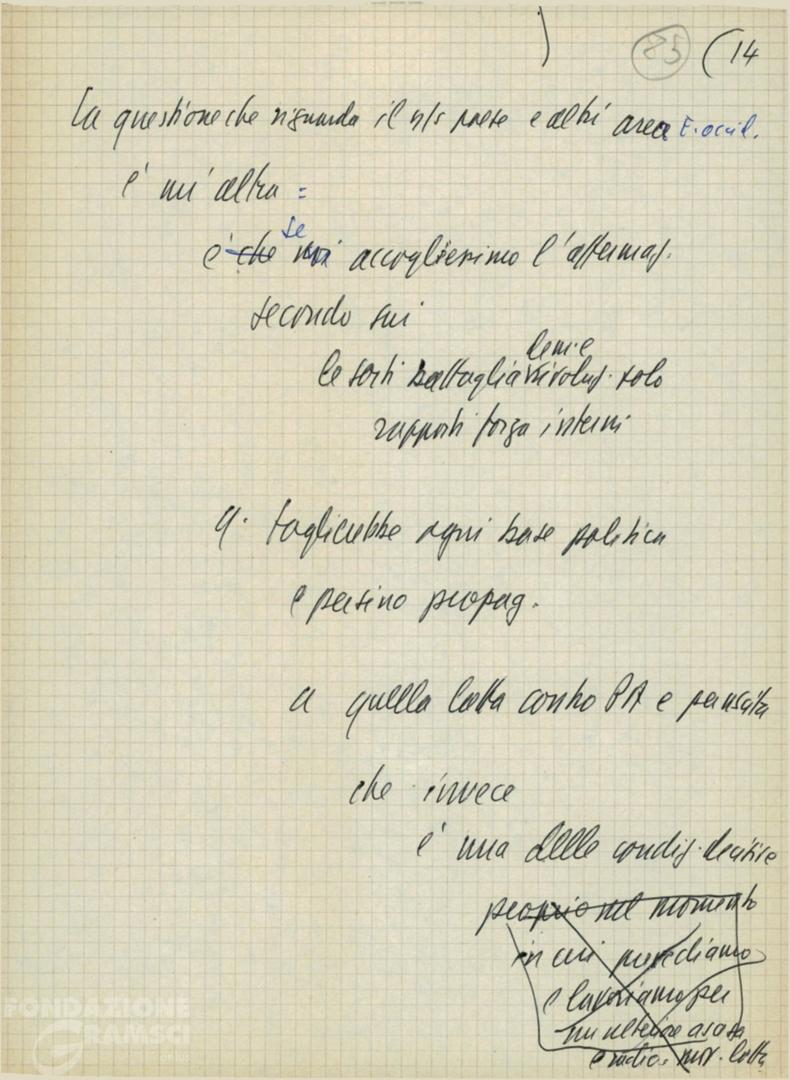 25 (14
La questione che riguarda il n/s paese e altri area E. occid.
è un'altra =
è che se noi accogliessimo l'affermaz.
secondo cui
dem. e
le sorti battaglia rivoluz. solo
rapporti forza interni
q. toglierebbe ogni base politica
e persino propag.
a quella lotta contro PA e per uscita
che invece
è una delle condiz. decisive
proprio nel momento
in cui prevediamo
e lavoriamo per
un ulteriore
mov. lotta
FONDAZIONE
GRAMSCI